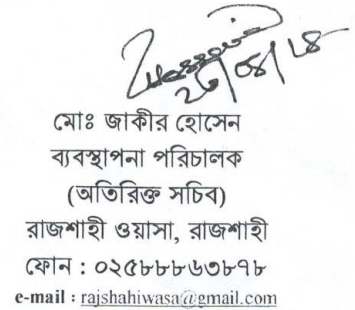 মোঃ জাকীর হোসেন
ব্যবস্থাপনা পরিচালক
(অতিরিক্ত সচিব)
রাজশাহী ওয়াসা, রাজশাহী
ফোন : ০২৫৮৮৮৬৩৮৭৮
e-mail : rajshahiwasa@gmail.com